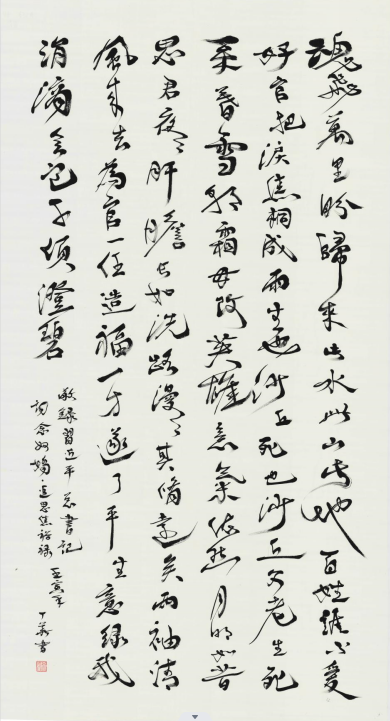 魂飛萬里盼歸來此水此山此地百姓誰不愛
好官把淚焦桐成雨生也沙丘死也沙丘父老生死
系暮雪朝霜毋改英雄意氣依然月明如昔
思君夜々肝膽長如洗路漫々其脩遠矣兩袖清
風來去為官一任造福一方遂了平生意綠我
涓滴會它千頃澄碧
敬錄習近平总書記
詞念奴嬌·追思焦裕祿